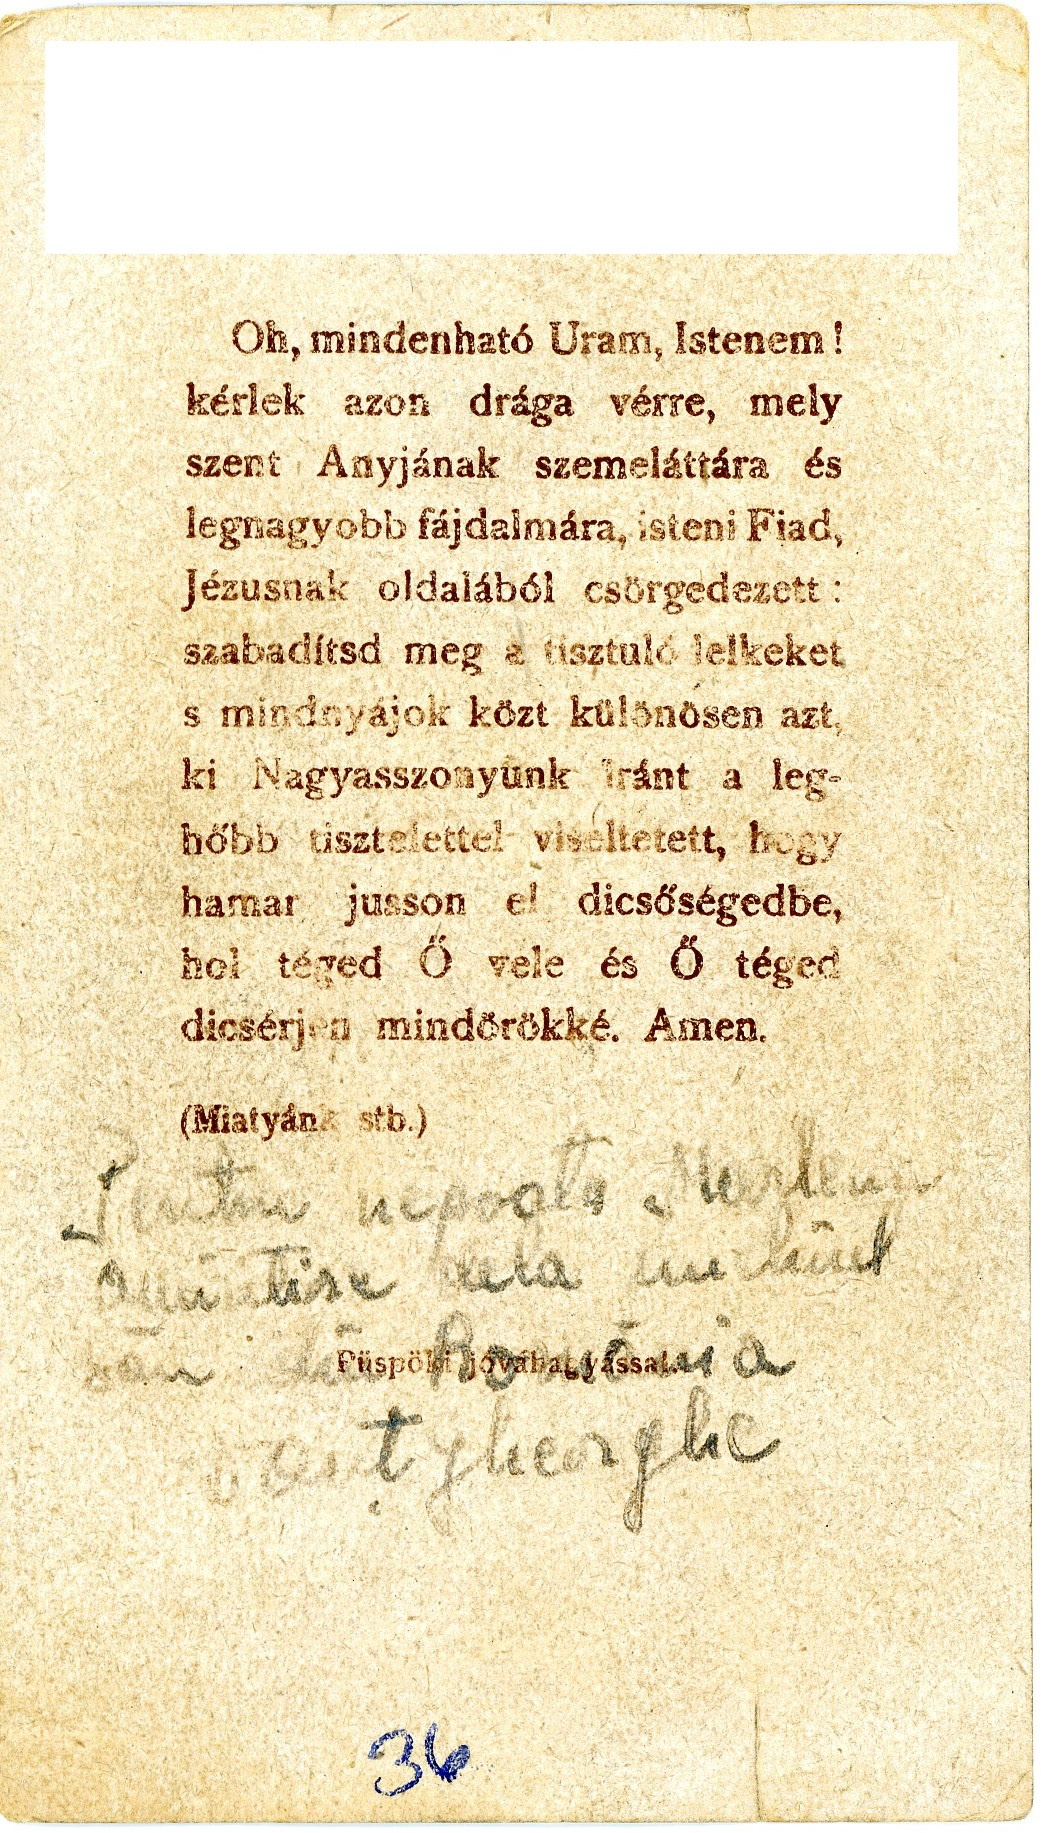 Oh, mindenható Uram, Istenem!
kérlek azon drága vérre, mely
szent Anyjának szemeláttára és
legnagyobb fájdalmára, isteni Fiad,
Jézusnak oldalából csörgedezett:
szabadítsd meg a tisztuló lelkeket
s mindnyájok közt különösen azt,
ki Nagyasszonyunk iránt a leg-
hőbb tisztelettel viseltetett, hogy
hamar jusson el dicsőségedbe,
hol téged Ő vele és Ő téged
dicsérjen mindörökké. Amen.
(Miatyánk stb.)
Pentru nepoata
dela
România
Püspöki jóváhagyással.
gheorghe
36